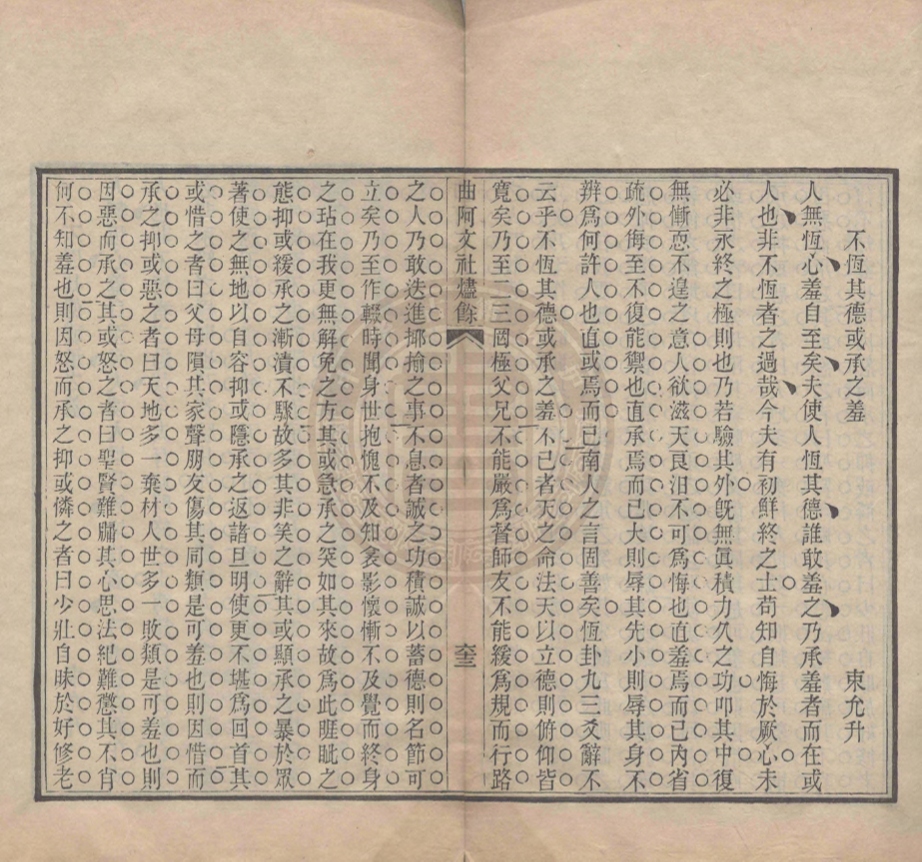 不恆其德或承之羞 束允升
人無恆心羞自至矣夫使人恆其德誰敢羞之乃承羞者而在或
人也非不恆者之過哉今夫有初鮮終之士苟知自悔於厥心未
必非永終之極則也乃若驗其外旣無眞積力久之功叩其中復
無慚恧不遑之意人欲滋天良汨不可爲悔也直羞焉而已內省
疏外侮至不復能禦也直承焉而已大則辱其先小則辱其身不
辨爲何許人也直或焉而已南人之言固善矣恆卦九三爻辭不
云乎不恆其德或承之羞不已者天之命法天以立德則俯仰皆
寬矣乃至二三罔極父兄不能嚴爲督師友不能緩爲規而行路
曲阿文社燼餘 
之人乃敢迭進揶揄之事不息者誠之功積誠以蓄德則名節可
立矣乃至作輟時聞身世抱愧不及知衾影懷慚不及覺而終身
之玷在我更無解免之方其或急承之突如其來故爲此睚眦之
態抑或緩承之漸漬不驟故多其非笑之辭其或顯承之暴於眾
著使之無地以自容抑或隱承之返諸旦明使更不堪爲回首其
或惜之者曰父母隕其家聲朋友傷其同類是可羞也則因惜而
承之抑或惡之者曰天地多一棄材人世多一敗類是可羞也則
因惡而承之其或怒之者曰聖賢難牖其心思法紀難懲其不肖
何不知羞也則因怒而承之抑或憐之者曰少壯自昧於好修老